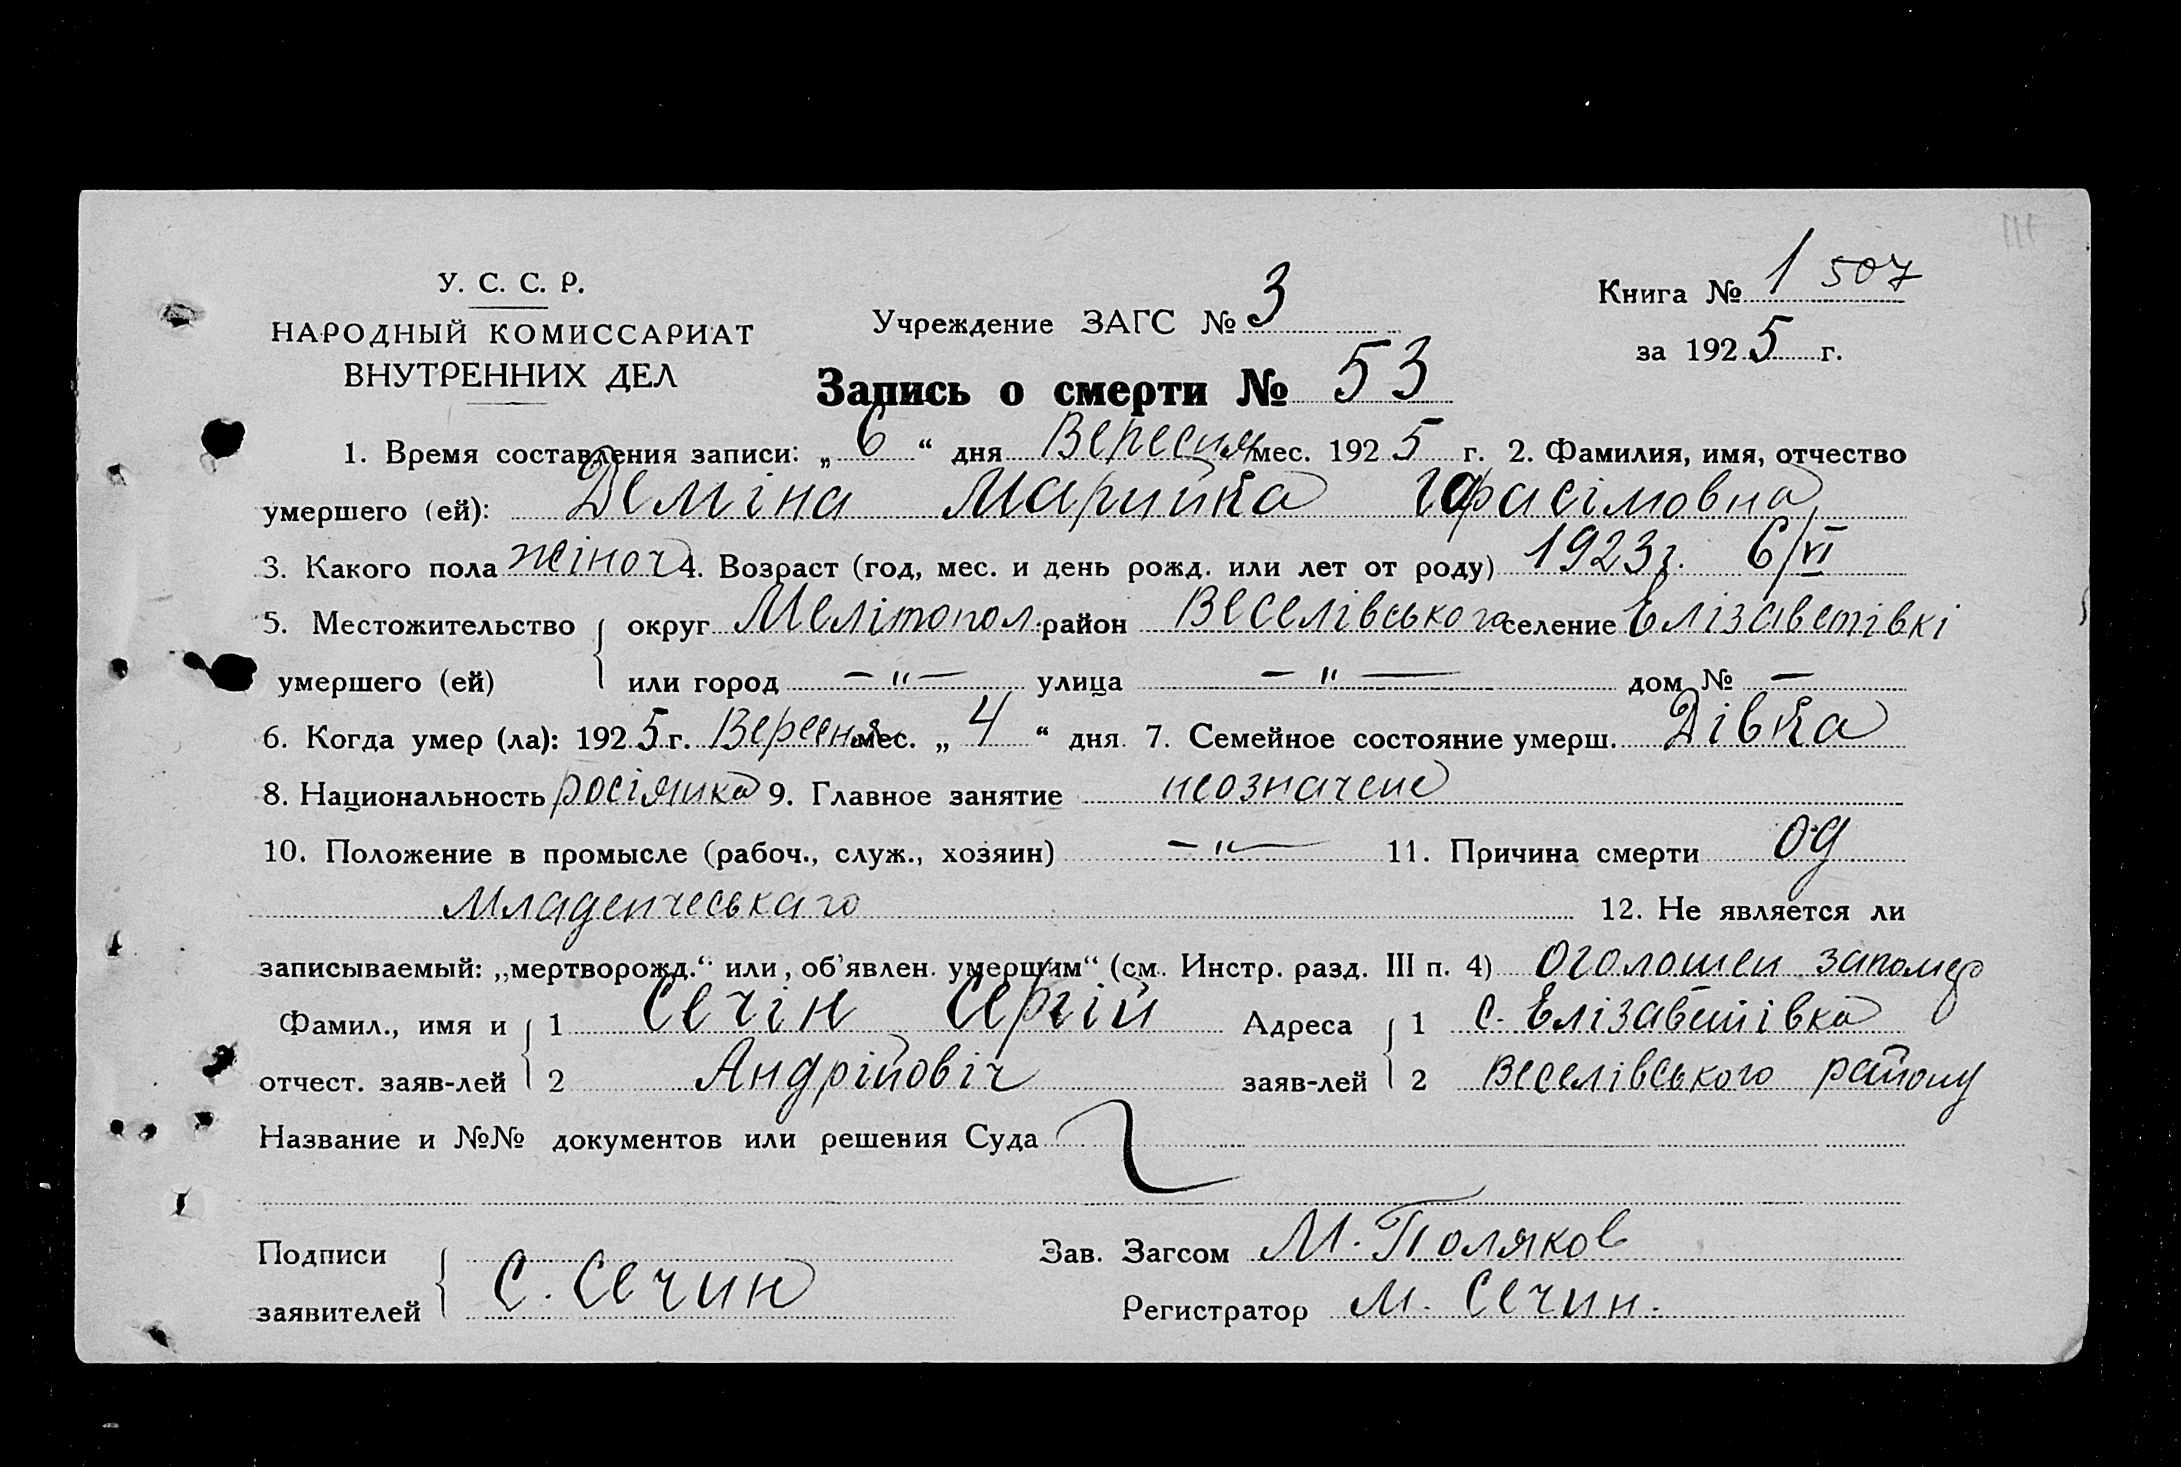 У. С. С. Р.
НАРОДНЫЙ КОМИССАРИАТ
ВНУТРЕННИХ ДЕЛ
Учреждение ЗАГС № 3
Книга № 1 507
за 1925 г.
Запись о смерти № 53
1. Время составления записи: „ 6 “ дня Вересня мес. 1925 г. 2. Фамилия, имя, отчество
умершего (ей): Деміна Марийка Гарасімовна
3. Какого пола жіноч 4. Возраст (год, мес. и день рожд. или лет от роду) 1923 г. 6/VI
5. Местожительство { округ Мелітопол. район Веселівського селение Елізаветівкі
умершего (ей) или город —"— улица —"— дом № —
6. Когда умер (ла): 1925 г. Вересня мес. „ 4 “ дня 7. Семейное состояние умерш. Дівка
8. Национальность росіянка 9. Главное занятие неозначене
10. Положение в промысле (рабоч., служ., хозяин) —"— 11. Причина смерти од
Младенчеськаго 12. Не является ли
записываемый: „мертворожд.“ или „об'явлен. умершим“ (см. Инстр. разд. III п. 4) оголошен запомер
Фамил., имя и { 1 Сечін Сергій Адреса { 1 с. Елізаветівка
отчест. заяв-лей 2 Андрійовіч заяв-лей 2 Веселівського району
Название и №№ документов или решения Суда
Подписи { Зав. Загсом М. Поляков
заявителей С. Сечин Регистратор М. Сечин.